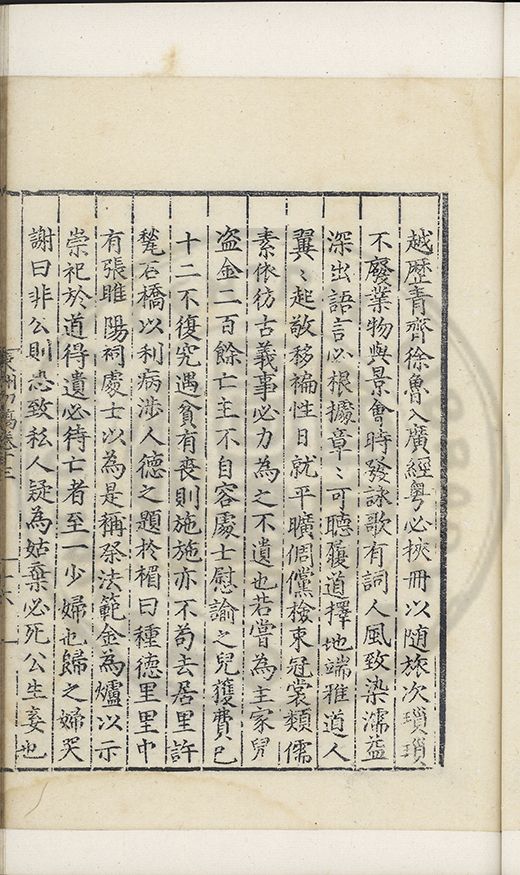 越歴青齊徐魯入廣經粤必挾冊以随旅次瑣瑣
不廢業物與景會時發詠歌有詞人風致染濡益
深出語言必根據章〻可聽獲道擇地端雅道人
翼〻起敬移褊性日就平曠倜儻檢束冠裳類儒
素依彷古義事必力為之不遺也若嘗為主家兒
盗金二百餘亡主不自容處士慰諭之兒獲費已
十二不復究遇貧有喪則施施亦不苟去居里許
甃石橋以利病涉人德之題於楣曰種德里里中
有張睢陽祠處士以為是稱祭法範金為爐以示
崇祀於道得遺必待亡者至一少婦也歸之婦哭
謝曰非公則恐致私人疑為姑棄必死公生妾也
初稿卷十三